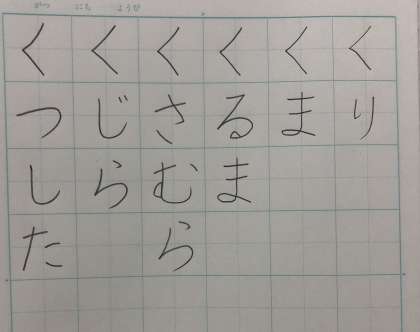 がつ にち ようび
くり
くま
くるま
くさむら
くじら
くつした